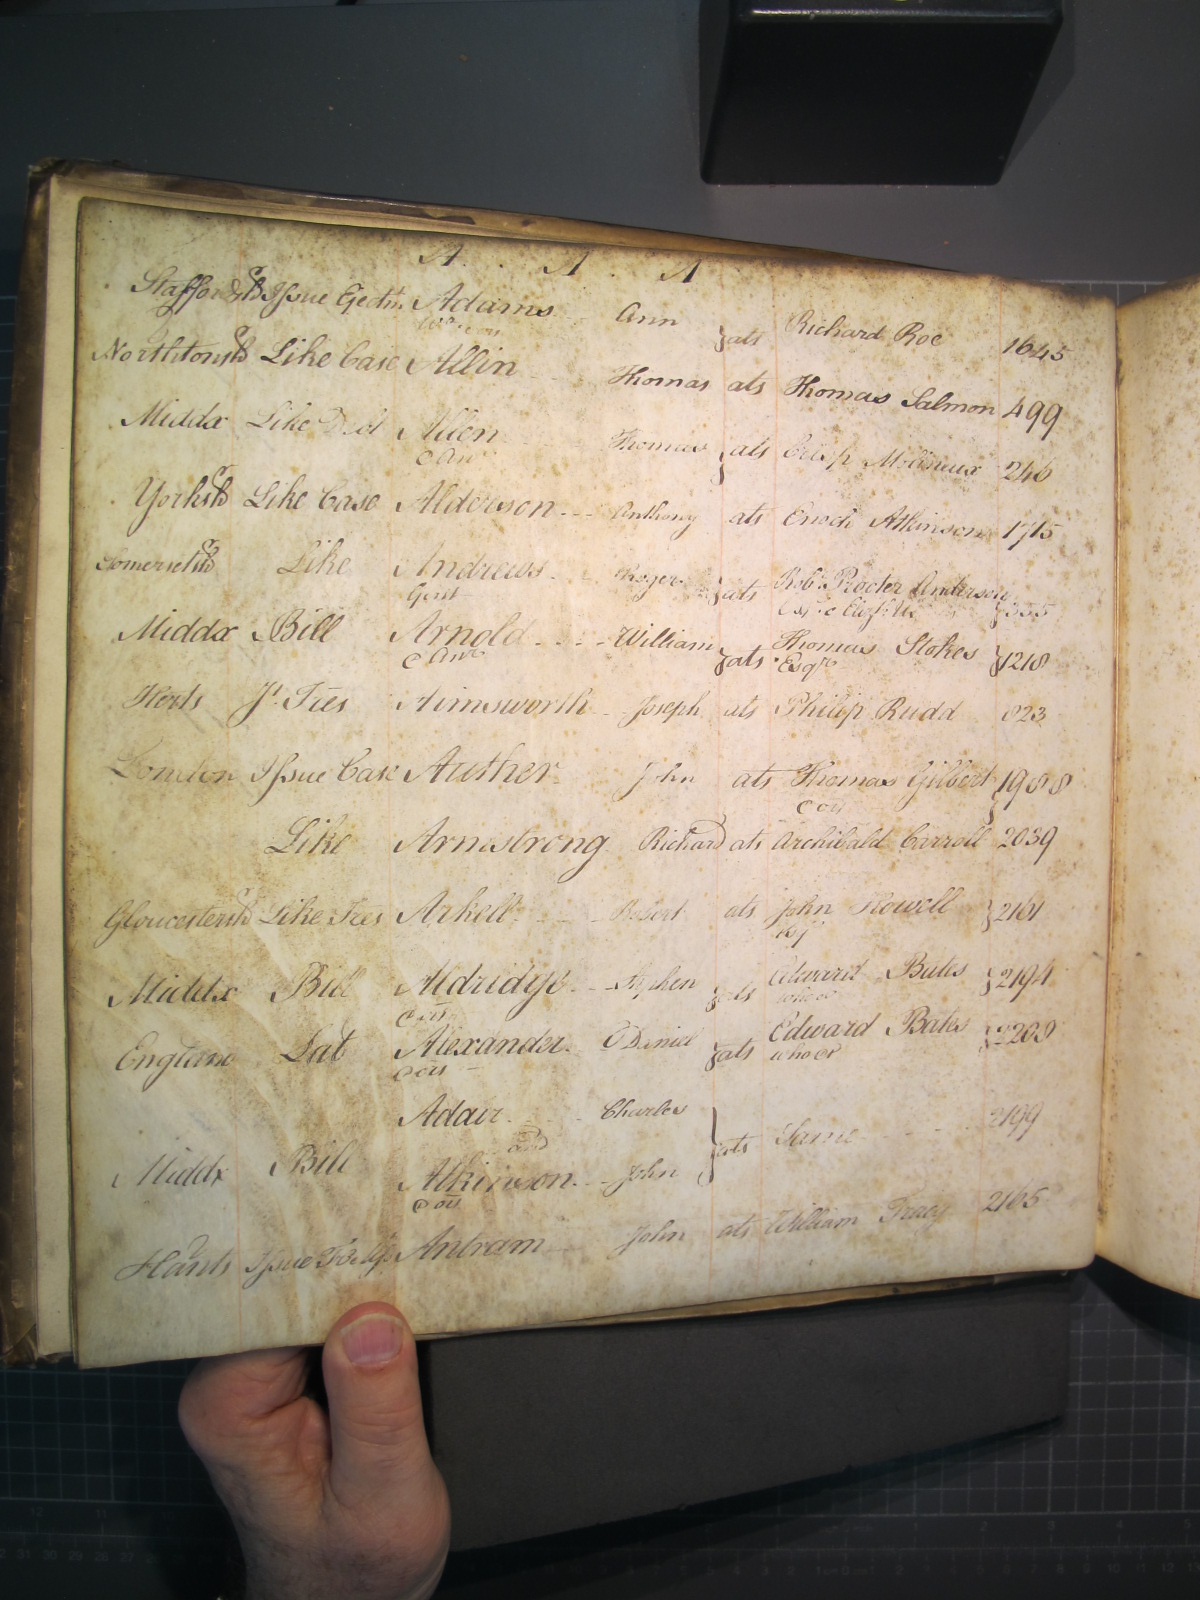 A . A . A
Staffordsh Issue Ejectm Adams Ann } ats Richard Roe 1645
Northtonsh Like Case Allin Thomas ats Thomas Salmon 499
Middx Like Allen Thomas } ats Crisp Molineux 246
Yorksh Like Case Alderson Anthony ats Enoch Atkinson 1715
Somersetsh Like Andrews Roger } ats Robt Procter Anderson
Gent } 355
Middx Bill Arnold William } ats Thomas Stokes } 1218
Esqr
Herts Js Tres Aimsworth Joseph ats Philip Rudd 823
London Issue Case Auther John ats Thomas Gilbert } 1988
Like Armstrong Richard ats Archibald Carroll 2039
Gloucestersh Like Tres Arkell Robert ats John Howell } 2161
Middx Bill Aldridge Stephen } ats Edward Bates } 2194
ors
England Lat Alexander Daniel } ats Edward Bates } 2209
ors who or
Adair Charles
and } ats Same 2199
Middx Bill Atkinson John
ors
Hants Issue Antram John ats William Tracy 2165